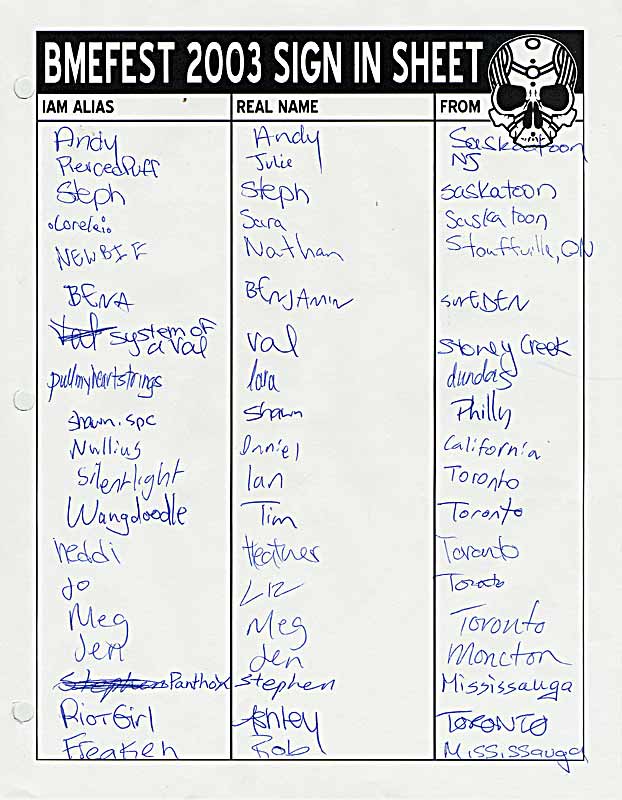 BMEFEST 2003 SIGN IN SHEET
IAM ALIAS REAL NAME FROM
Andy Andy Saskatoon
PiercedPuff Julie NJ
Steph Steph saskatoon
.corelai. Sara Saskatoon
NEWBIE Nathan Stouffville, ON
BENA BENJAMIN swEDEN
system of a val val Stoney Creek
pullmyheartstrings lara dundas
shawn.spc shawn Philly
Nullius Daniel California
Silentlight Ian Toronto
Wangdoodle Tim Toronto
heddi Heather Toronto
Jo Liz Toronto
Meg Meg Toronto
Jen Jen Moncton
Stephen PanthoX Stephen Mississauga
RiotGirl Ashley TORONTO
Freakeh Rob Mississauga